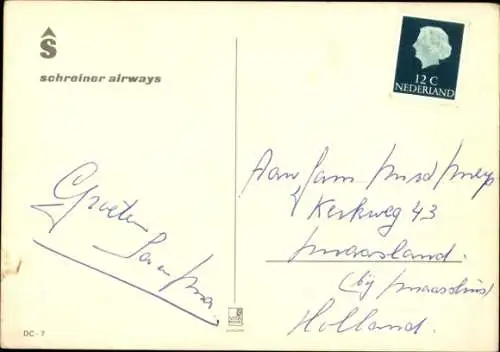 S
schreiner airways
12 C
NEDERLAND
Aan Fam
Kerkweg 43
Maasland
(bij Maassluis)
Holland.
Groeten
DC-7